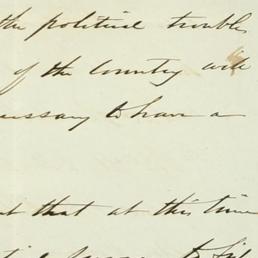 the political troubles
of the Country will
necessary to have a
that at this time